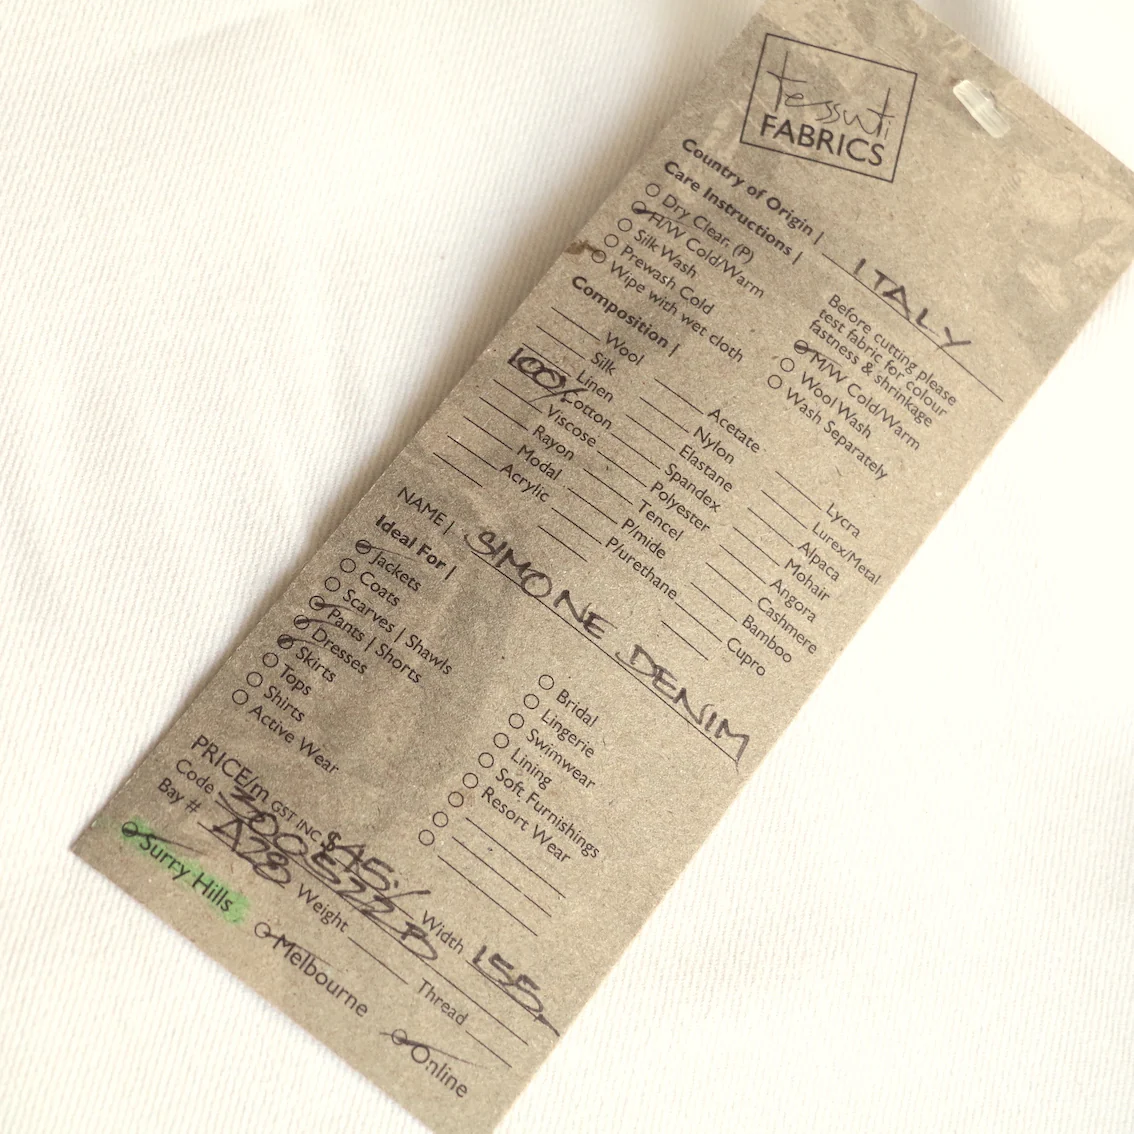 tessuti
FABRICS
Country of Origin | ITALY
Care Instructions |
Dry Clean (P)
H/W Cold/Warm
Silk Wash
Prewash Cold
Wipe with wet cloth
Before cutting please
test fabric for colour
fastness & shrinkage
M/W Cold/Warm
Wool Wash
Wash Separately
Composition |
Wool
Silk
Linen
100% Cotton
Viscose
Rayon
Modal
Acrylic
Acetate
Nylon
Elastane
Spandex
Polyester
Tencel
P/mide
P/urethane
Lycra
Lurex/Metal
Alpaca
Mohair
Angora
Cashmere
Bamboo
Cupro
NAME | SIMONE DENIM
Ideal For |
Jackets
Coats
Scarves | Shawls
Pants | Shorts
Dresses
Skirts
Tops
Shirts
Active Wear
Bridal
Lingerie
Swimwear
Lining
Soft Furnishings
Resort Wear
PRICE/m GST INC $45/ Width 155
Code
Bay # A28 Weight Thread
Surry Hills Melbourne Online